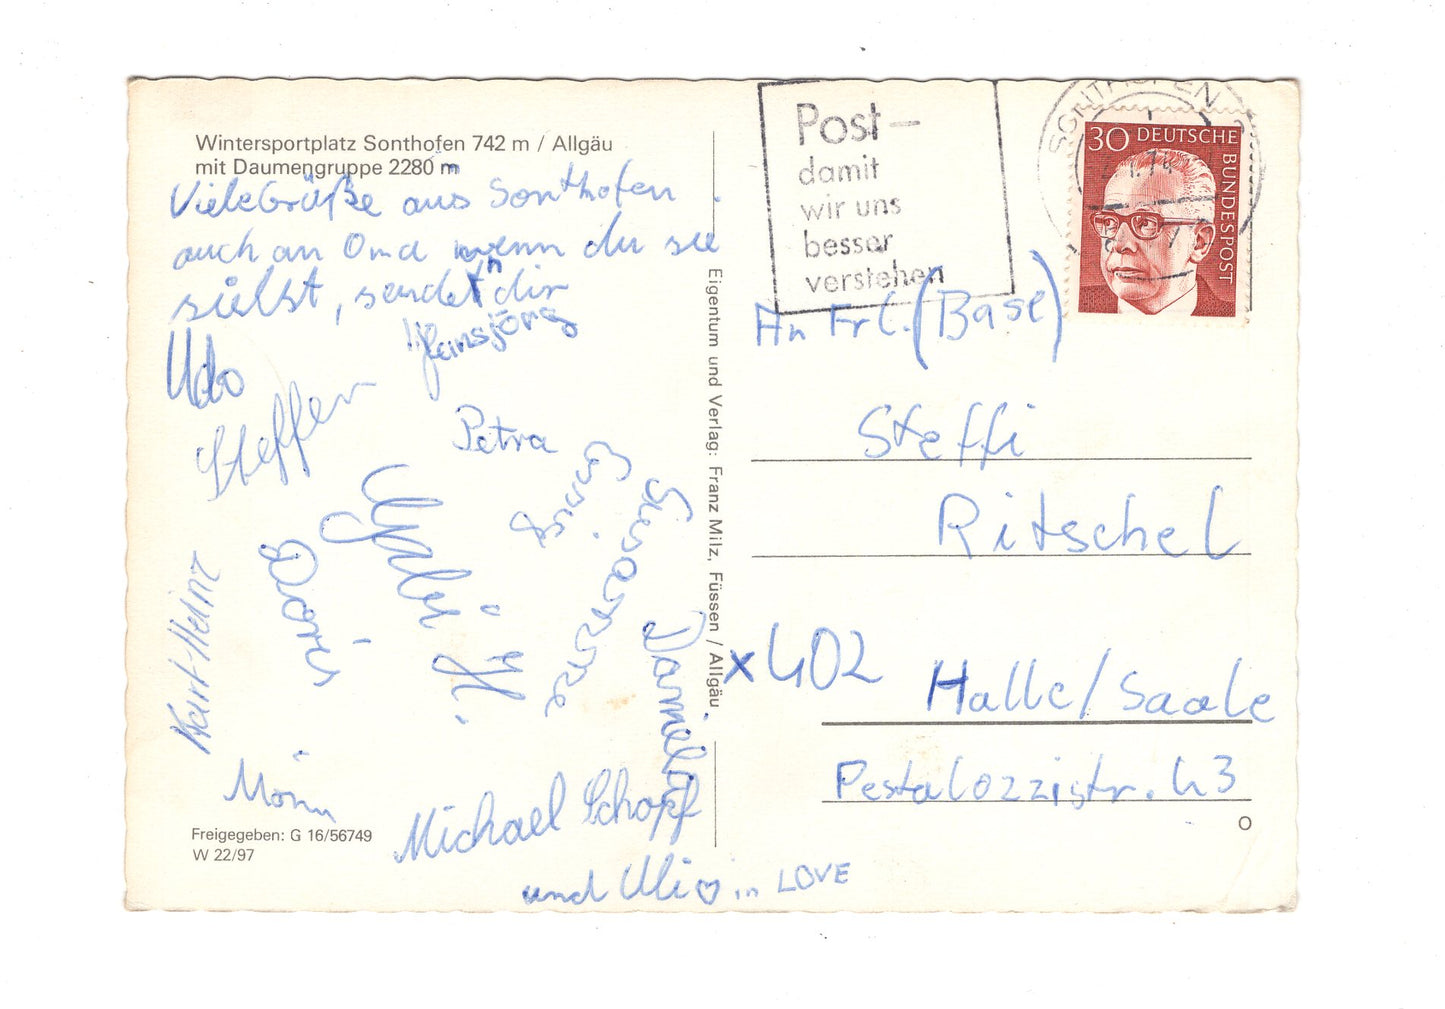 Wintersportplatz Sonthofen 742 m / Allgäu
mit Daumengruppe 2280 m
Viele Grüße aus Sonthofen.
auch an Oma wenn du sie
siehst, senden dir
Hansjörg
Udo
Steffen
Petra
Conny
Susanne
Gabi H.
Doris
Daniela
Karl-Heinz
Michael Schopf
und Uli ♡ in LOVE
Freigegeben: G 16/56749
W 22/97
Eigentum und Verlag: Franz Milz, Füssen / Allgäu
Post –
damit
wir uns
besser
verstehen
SONTHOFEN
30 DEUTSCHE
BUNDESPOST
An Frl. (Base)
Steffi
Ritschel
x 402 Halle/Saale
Pestalozzistr. 43
O